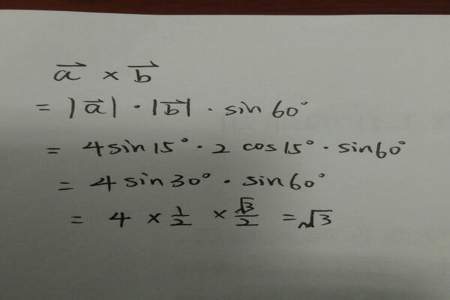 a⃗ × b⃗
= |a⃗| · |b⃗| · sin 60°
= 4 sin 15° · 2 cos 15° · sin 60°
= 4 sin 30° · sin 60°
= 4 × 1/2 × √3/2 = √3